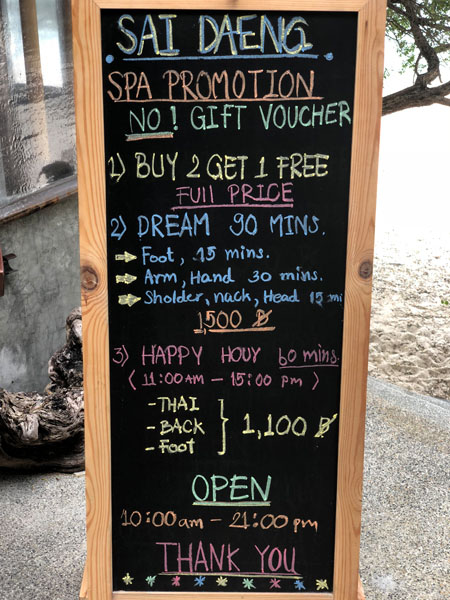 SAI DAENG
SPA PROMOTION
NO! GIFT VOUCHER
1) BUY 2 GET 1 FREE
FUll PRICE
2) DREAM 90 MINS.
Foot, 15 mins.
Arm, Hand 30 mins.
Sholder, nack, Head 15 mi
1,500 ฿
3) HAPPY HOUY 60 mins.
(11:00 AM - 15:00 pm)
-THAI
-BACK
-Foot
1,100 ฿
OPEN
10:00 am - 21:00 pm
THANK YOU